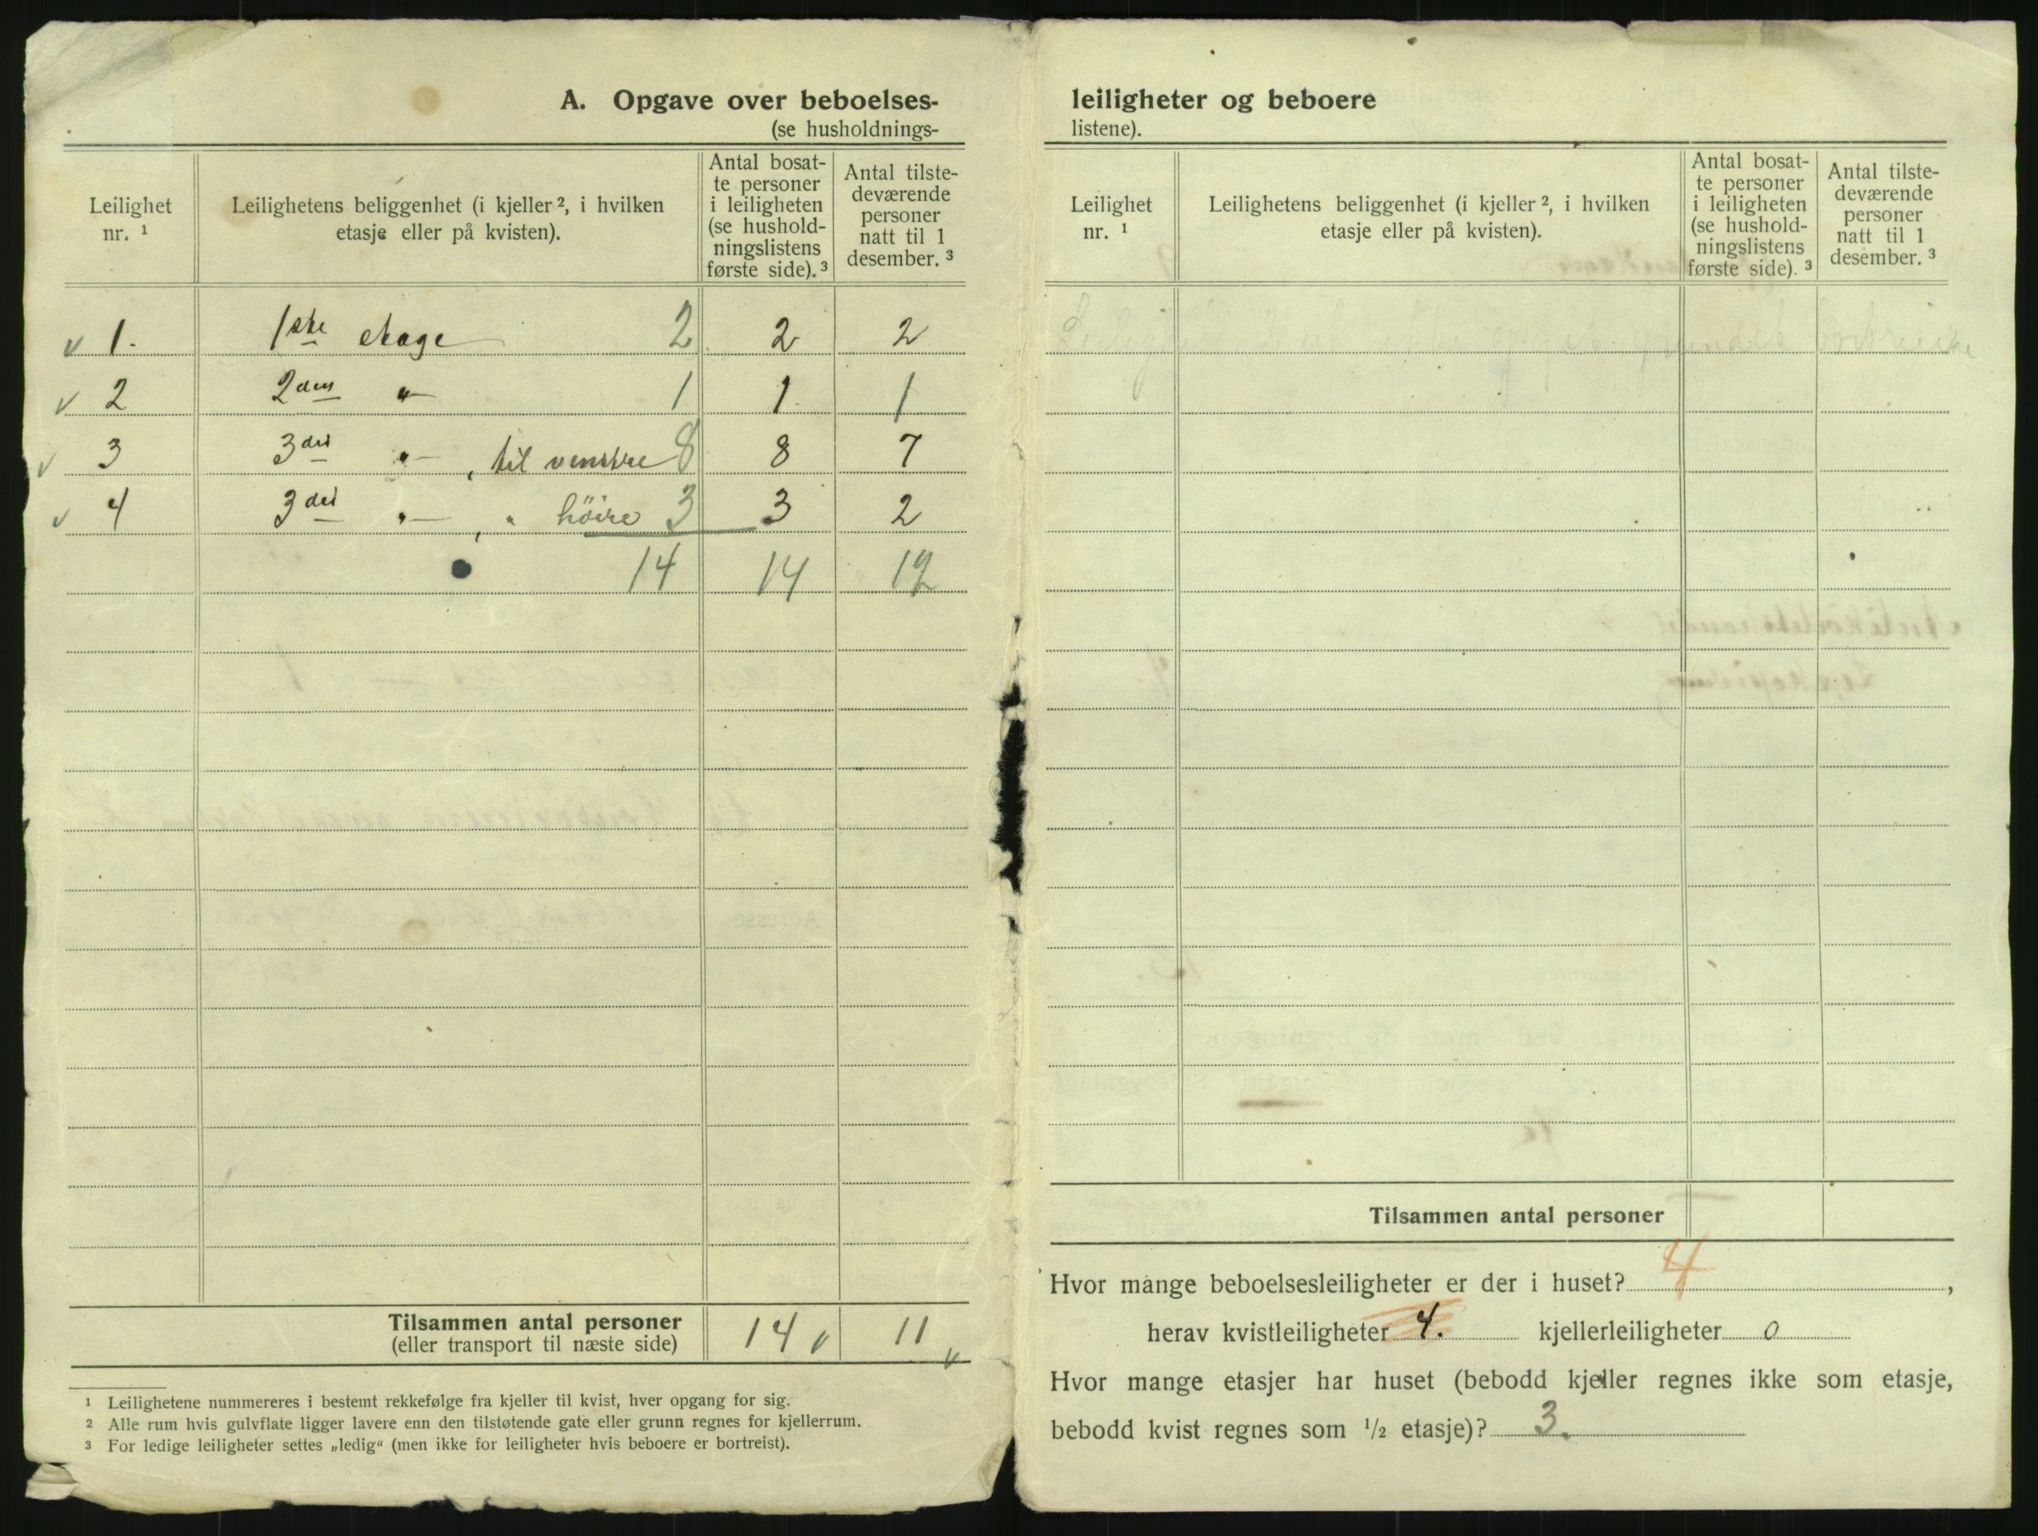 A. Opgave over beboelses-
(se husholdnings-
Leilighet nr. ¹
Leilighetens beliggenhet (i kjeller ², i hvilken etasje eller på kvisten).
Antal bosat-
te personer
i leiligheten
(se hushold-
ningslistens
første side). ³
Antal tilste-
deværende
personer
natt til 1
desember. ³
1. 1ste etage 2 2 2
2 2den " 1 1 1
3 3die " , til venstre 8 8 7
4 3die " , " höire 3 3 2
14 14 12
Tilsammen antal personer 14 11
(eller transport til næste side)
¹ Leilighetene nummereres i bestemt rekkefølge fra kjeller til kvist, hver opgang for sig.
² Alle rum hvis gulvflate ligger lavere enn den tilstøtende gate eller grunn regnes for kjellerrum.
³ For ledige leiligheter settes „ledig“ (men ikke for leiligheter hvis beboere er bortreist).
leiligheter og beboere
listene).
Leilighet nr. ¹
Leilighetens beliggenhet (i kjeller ², i hvilken etasje eller på kvisten).
Antal bosat-
te personer
i leiligheten
(se hushold-
ningslistens
første side). ³
Antal tilste-
deværende
personer
natt til 1
desember. ³
Tilsammen antal personer
Hvor mange beboelsesleiligheter er der i huset? 4,
herav kvistleiligheter 4. kjellerleiligheter 0
Hvor mange etasjer har huset (bebodd kjeller regnes ikke som etasje,
bebodd kvist regnes som ½ etasje)? 3.